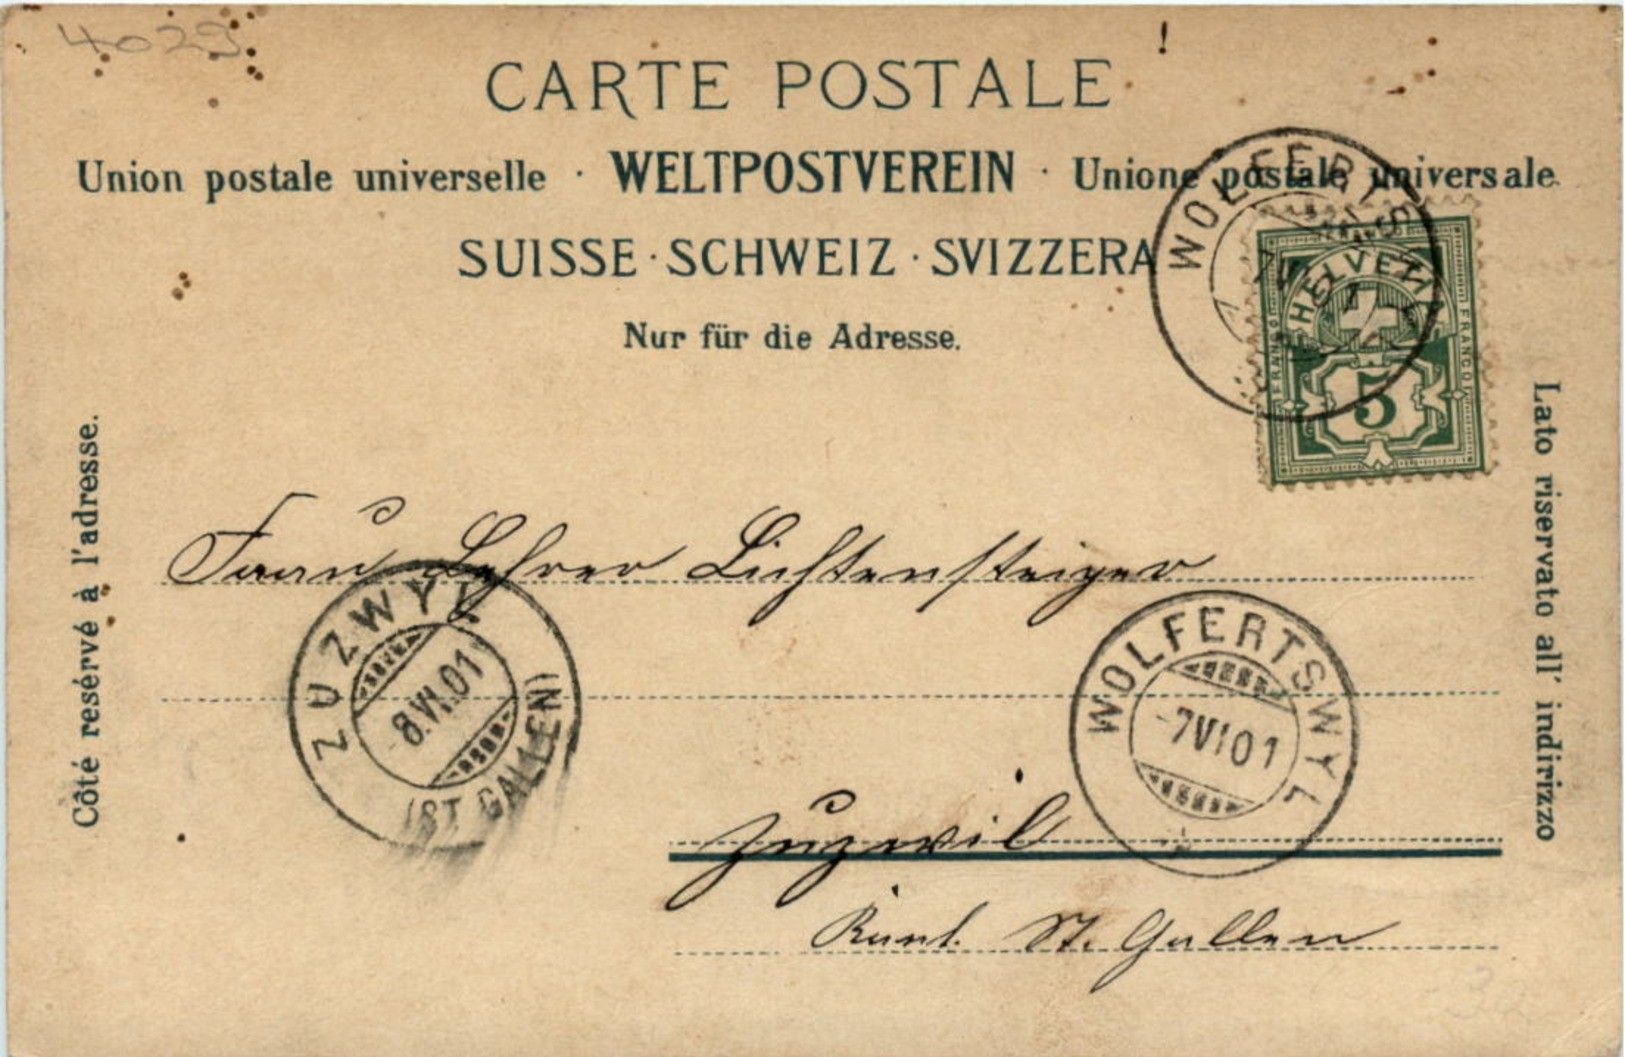 4029
CARTE POSTALE
Union postale universelle · WELTPOSTVEREIN · Unione postale universale
SUISSE · SCHWEIZ · SVIZZERA
Nur für die Adresse.
WOLFERTSWYL
7 VI 01
HELVETIA
FRANCO
5
Côté resérvé à l'adresse.
Lato riservato all' indirizzo
Frau Lehrer Lichtensteiger
ZUZWYL
8.VI.01
(ST. GALLEN)
WOLFERTSWYL
-7 VI 01
Zuzwil
Kant. St. Gallen